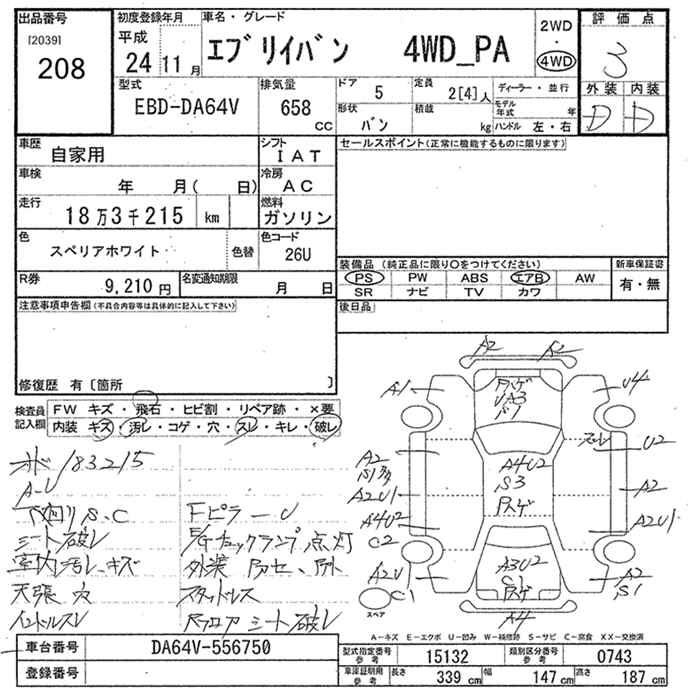 出品番号
[2039]
208
初度登録年月
平成
24 11 月
車名・グレード
エブリイバン 4WD_PA
2WD
・
4WD
評価点
3
外装 内装
D D
型式
EBD-DA64V
排気量
658
CC
ドア
5
定員
2[4]人
形状
バン
積載
kg
ディーラー・並行
モデル年式 年
ハンドル 左・右
車歴
自家用
シフト
IAT
車検
年 月( 日)
冷房
AC
走行
18万3千215 km
燃料
ガソリン
色
スペリアホワイト
色替
色コード
26U
R券
9,210 円
名変通知期限
月 日
セールスポイント(正常に機能するものに限ります)
装備品(純正品に限り○をつけてください)
PS PW ABS エアB AW
SR ナビ TV カワ
新車保証書
有・無
後日品
注意事項申告欄(不具合内容等は具体的に記入して下さい)
修復歴 有〔箇所 〕
検査員記入欄
FW キズ・飛石・ヒビ割・リペア跡・×要
内装 キズ・汚レ・コゲ・穴・スレ・キレ・破レ
183215
A-U
下廻りS、C
シート破レ
室内汚レ、キズ
天張穴
ハンドルスレ
Fピラー U
E/Gチェックランプ点灯
スタッドレス
フロア シート破レ
A2 A2
A1
U4
A3
A2
スレ
U2
A4U2
S3
A2U1
A2
A4U2
C2
A2U1
A2U1
A3U2
C1
A2
S1
C1
A4
スペア
A-キズ E-エクボ U-凹み W-補修跡 S-サビ C-腐食 XX-交換済
車台番号
DA64V-556750
登録番号
型式指定番号 参考
15132
類別区分番号 参考
0743
車庫証明用 参考
長さ 339 cm 幅 147 cm 高さ 187 cm